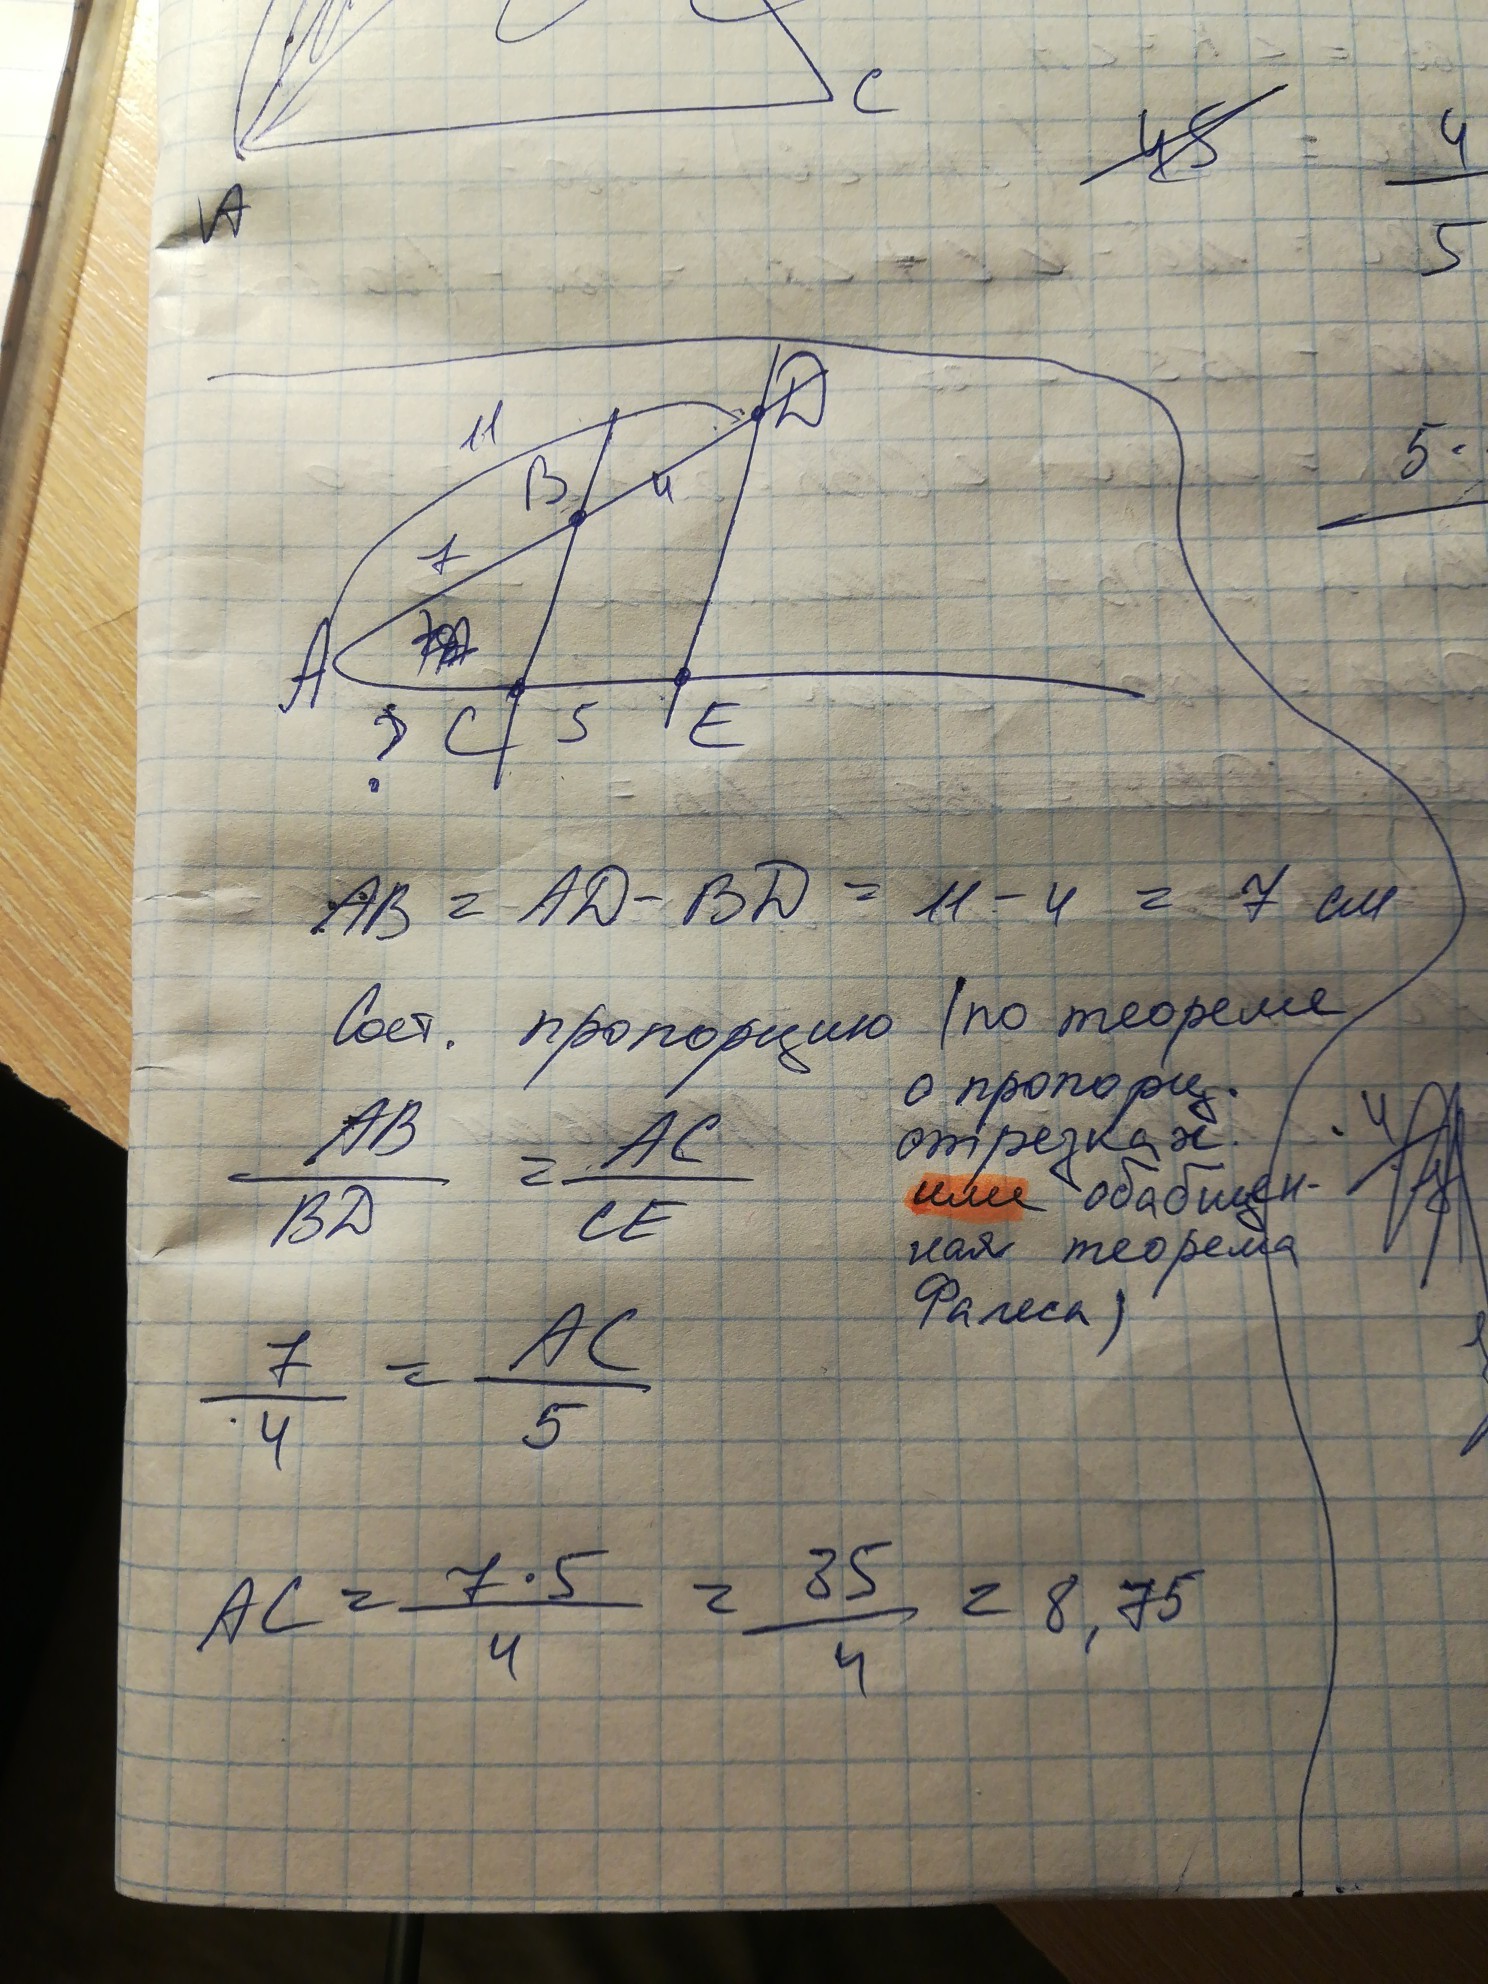 C
A
45 = 4
5
11
D
B
4
7
5.
A
? C 5 E
AB = AD - BD = 11 - 4 = 7 см
Сост. пропорцию (по теореме
о пропорц.
отрезках
или обабщен-
ная теорема
Фалеса)
AB = AC
BD CE
4
7 = AC
4 5
AC = 7·5 = 35 = 8,75
4 4